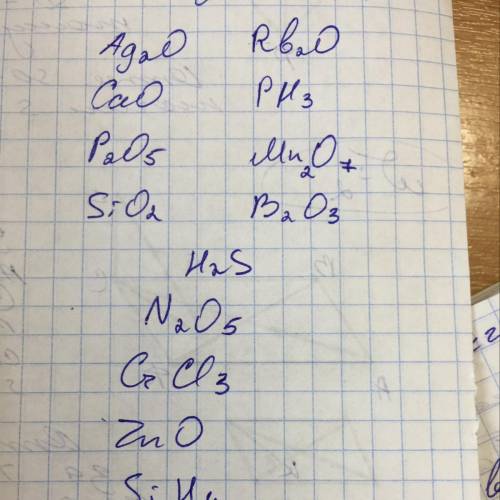 Ag₂O Rb₂O
CaO PH₃
P₂O₅ Mn₂O₇
SiO₂ B₂O₃
H₂S
N₂O₅
CrCl₃
ZnO
SiH₄